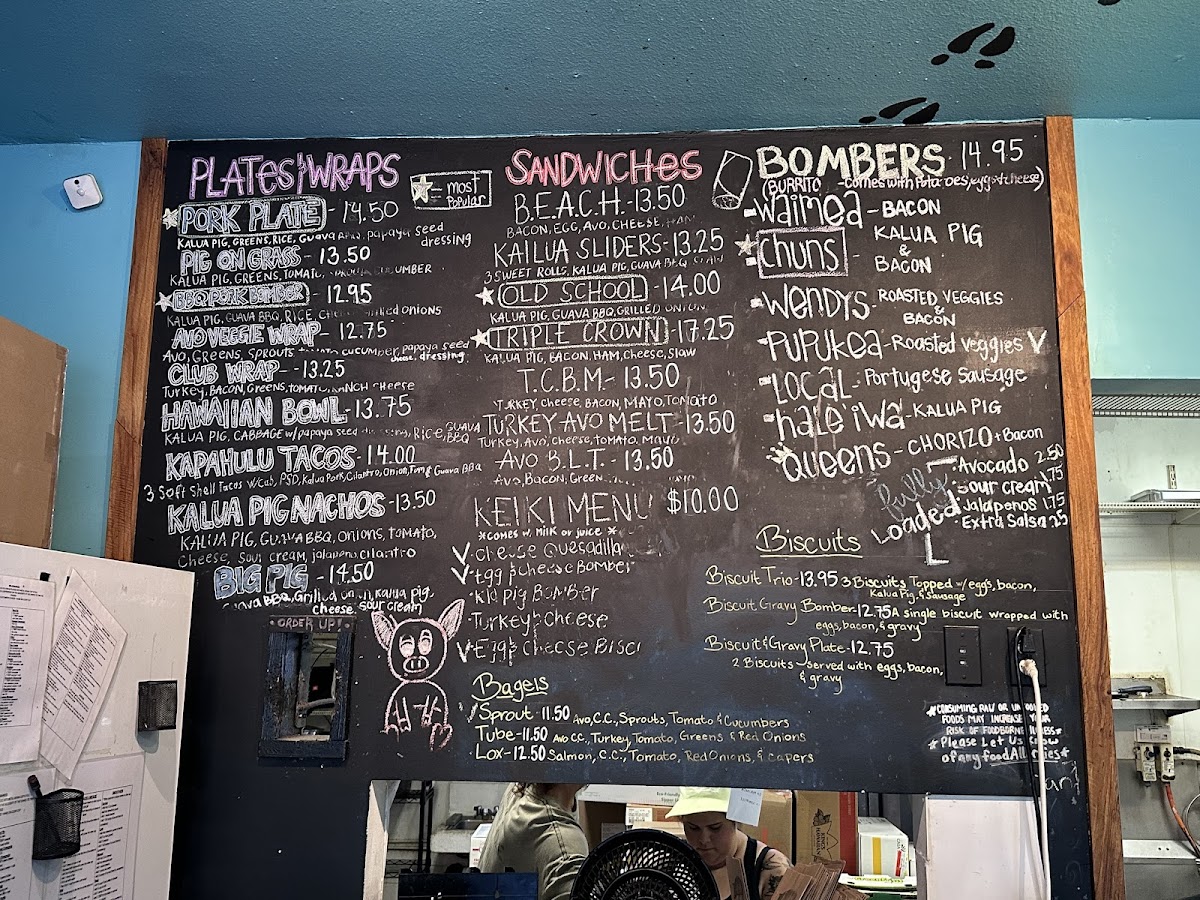 PLATES/WRAPS
- most Popular
PORK PLATE - 14.50
KALUA PIG, GREENS, RICE, GUAVA BBQ, papaya seed dressing
PIG ON GRASS - 13.50
KALUA PIG, GREENS, TOMATO, SPROUTS, CUCUMBER
BBQ PORK BOMBER - 12.95
KALUA PIG, GUAVA BBQ, RICE, Cheese, grilled onions
AVO VEGGIE WRAP - 12.75
AVO, GREENS, SPROUTS, TOMATO, CUCUMBER, papaya seed
dressing
CLUB WRAP - 13.25
Turkey, BACON, Greens, TOMATO, RANCH cheese
HAWAIIAN BOWL - 13.75
KALUA PIG, CABBAGE w/ papaya seed dressing, Rice, GUAVA BBQ
KAPAHULU TACOS - 14.00
3 Soft Shell Tacos w/Cab, PSD, Kalua Pork, Cilantro, Onion, & Guava BBQ
KALUA PIG NACHOS - 13.50
KALUA PIG, GUAVA BBQ, ONIONS, TOMATO,
Cheese, sour cream, jalapeno, cilantro
BIG PIG - 14.50
Guava BBQ, Grilled onion, kalua pig,
cheese, sour cream
ORDER UP!
SANDWICHES
B.E.A.C.H. - 13.50
BACON, EGG, AVO, CHEESE, HAM
KAILUA SLIDERS - 13.25
3 SWEET ROLLS, KALUA PIG, GUAVA BBQ, SLAW
OLD SCHOOL - 14.00
KALUA PIG, GUAVA BBQ, GRILLED ONION
TRIPLE CROWN - 17.25
KALUA PIG, BACON, HAM, Cheese, Slaw
T.C.B.M. - 13.50
TURKEY, Cheese, BACON, MAYO, TOMATO
TURKEY AVO MELT - 13.50
Turkey, Avo, Cheese, TOMATO, Mayo
AVO B.L.T. - 13.50
Avo, Bacon, Green
KEIKI MENU $10.00
*COMES w. MILK or juice *
- Cheese Quesadilla
- Egg & Cheese Bomber
- Kid pig BOMBER
- Turkey & Cheese
- Egg & Cheese Bisc
Bagels
Sprout - 11.50 Avo, C.C., Sprouts, Tomato & Cucumbers
Tube - 11.50 Avo C.C., Turkey, Tomato, Greens & Red Onions
Lox - 12.50 Salmon, C.C., Tomato, Red Onions, & Capers
BOMBERS - 14.95
(BURRITO - comes with Potatoes, egg & cheese)
- Waimea - BACON
- Chuns - KALUA PIG & BACON
- Wendys - ROASTED VEGGIES & BACON
- Pupukea - Roasted Veggies V
- LOCAL - Portugese Sausage
- hale'iwa - KALUA PIG
- Queens - CHORIZO + Bacon
Fully Loaded
Avocado 2.50
Sour cream 1.75
Jalapenos 1.75
Extra Salsa
Biscuits
Biscuit Trio - 13.95 3 Biscuits Topped w/ eggs, bacon,
Kalua Pig, & Sausage
Biscuit Gravy Bomber - 12.75 A single biscuit wrapped with
eggs, bacon, & gravy
Biscuit & Gravy Plate - 12.75
2 Biscuits served with eggs, bacon,
& gravy
*CONSUMING RAW OR UNCOOKED
FOODS MAY INCREASE YOUR
RISK OF FOODBORNE ILLNESS*
* Please Let Us Know
of any food Allergies *